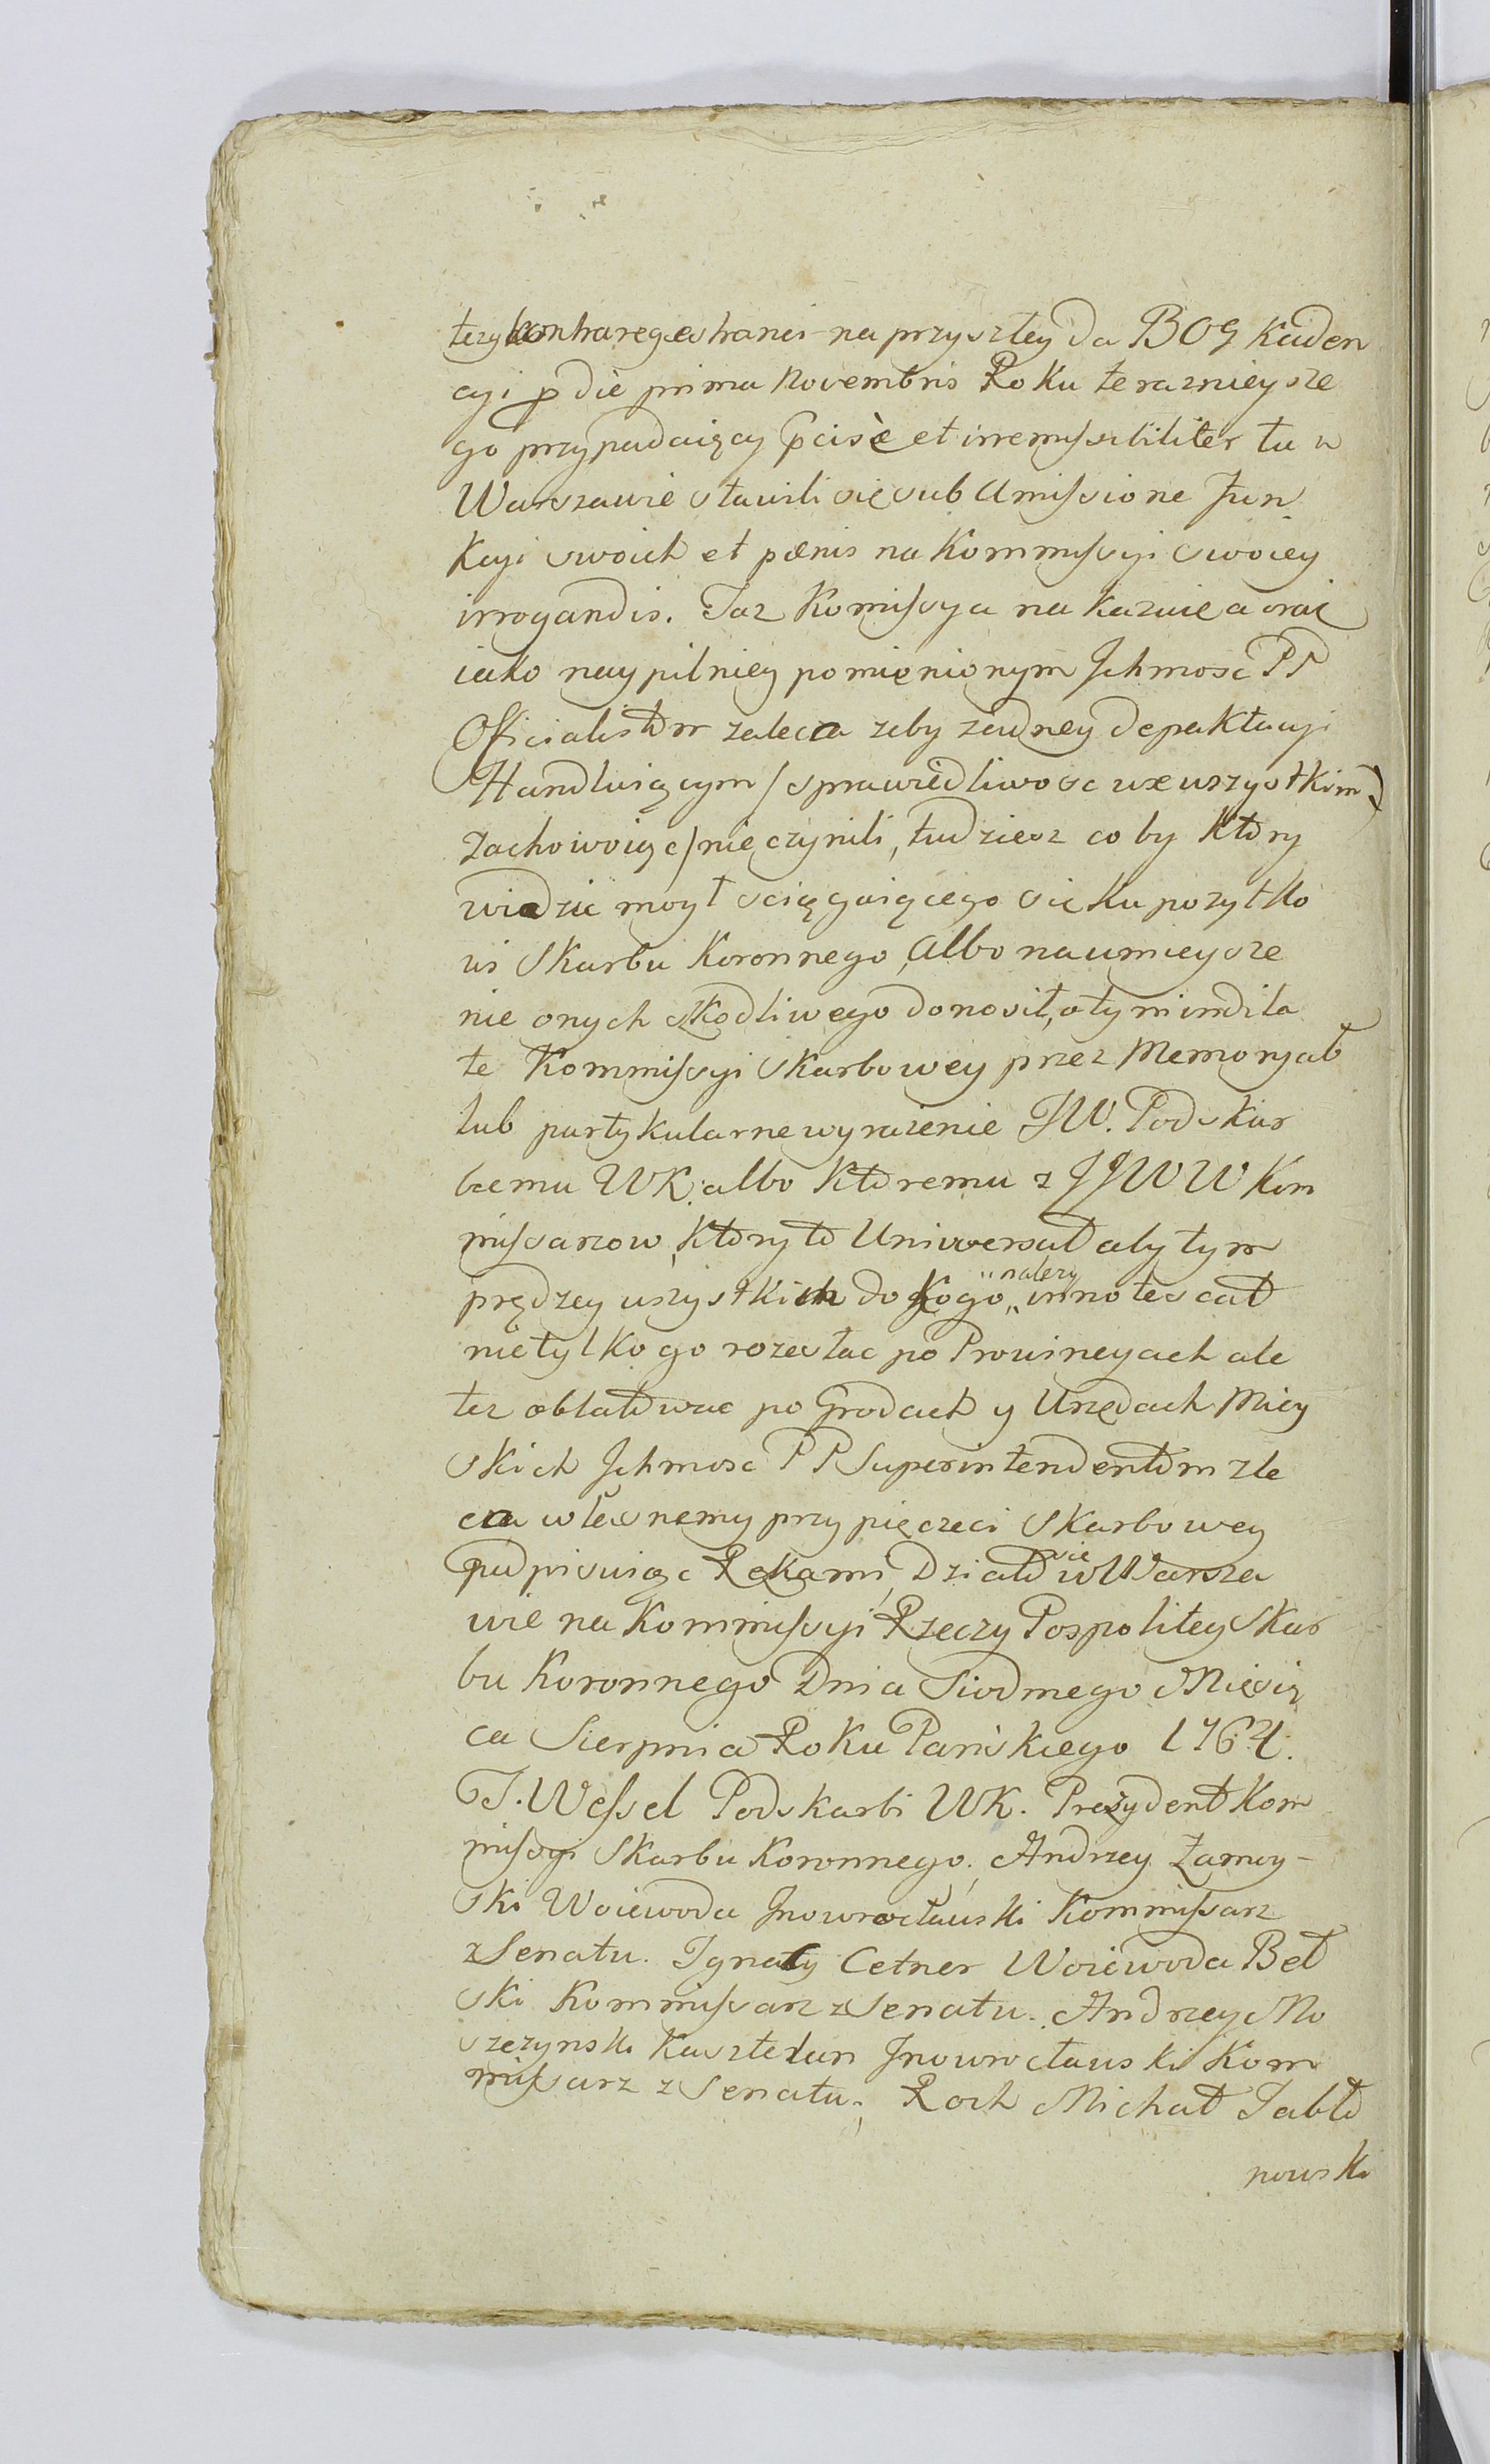 tezy kontraregestranci na przyszłey da BOG kaden
cyi p die prima Novembris Roku terazniejsze
go przypadaiącey pcisè et irremissibiliter tu w
Warszawie stawili się sub amissione Fun
kcyi swoich et pœnis na Kommissyi swoiey
irrogandis. Taz Komissya nakazuie a oraz
iako naypilniey pomienionym Jchmosc PP
Officialistom zaleca zeby zadney depaktacyi
Handluiącym / sprawiedliwosc we wszystkim
zachowuiąc / nie czynili, tudziesz co by ktory
widzic mogł sciągaiącego się ku pozytko
wi Skarbu Koronnego, albo na umnieysze
nie onych szkodliwego donosił, o tym indila
te Kommissyi Skarbowey przez Memoryał
lub partykularne wyrażenie JW. Podskar
biemu WK. albo ktoremu z JJWW Kom
missarzow, ktoryto Uniwersał aby tym
prędzey wszystkich do kogo „ należy innotescat
nietylko go rozesłac po Prowincyach ale
tez oblatowac po Grodach y Urzędach Miey
skich Jchmosc PP Superintendentom zle
ca własnemy przy pieczeci Skarbowey
podpisuiąc Rękami, Działo się w Warsza
wie na Kommissyi Rzeczy Pospolitey Skar
bu Koronnego Dnia Siodmego Miesią
ca Sierpnia Roku Pańskiego 1764.
T. Wessel Podskarbi WK. Prezydent Kom
missyi Skarbu Koronnego. Andrzey Zamoy-
ski Woiewoda Jnowrocławski Kommissarz
z Senatu. Jgnacy Cetner Woiewoda Beł
ski Kommissarz z Senatu. Andrzey Mo
szczynski Kasztelan Jnowrocławski Kom
missarz z Senatu; Roch Michał Jabło
nowski